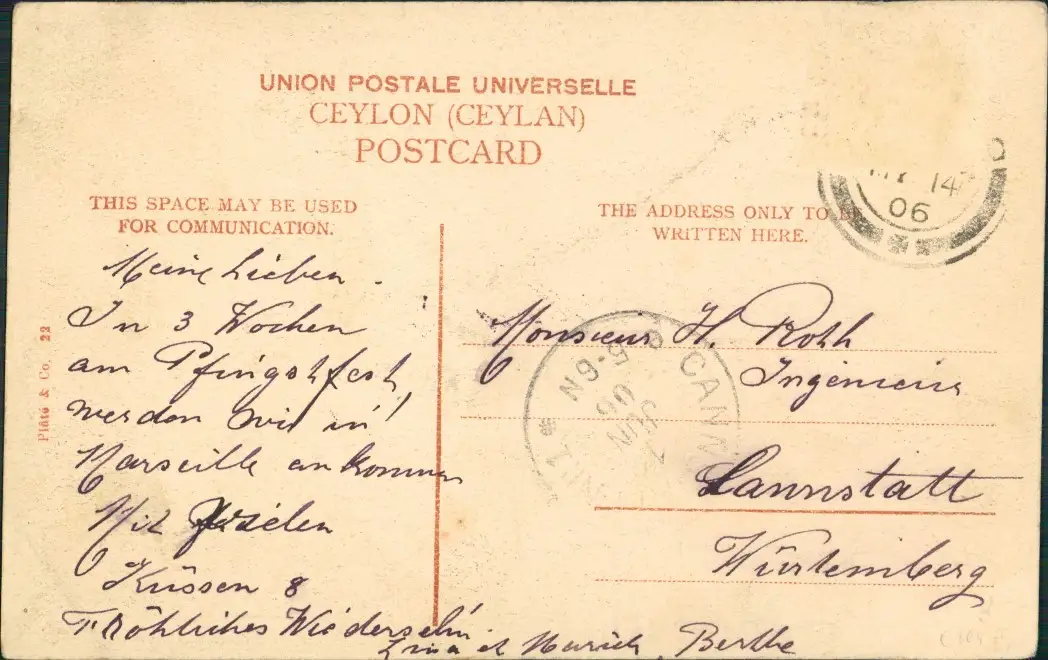 UNION POSTALE UNIVERSELLE
CEYLON (CEYLAN)
POSTCARD
THIS SPACE MAY BE USED
FOR COMMUNICATION.
Meine Lieben.
In 3 Wochen
am Pfingstfest
werden wir in
Marseille ankommen
Mit vielen
Küssen &
Fröhliches Wiedersehn.
Lina et Berthe
Plâté & Co. 22
THE ADDRESS ONLY TO BE
WRITTEN HERE.
Monsieur H. Roth
Ingenieur
Cannstatt
Würtemberg
14
06
CANN
5-6N
7 JUN
06